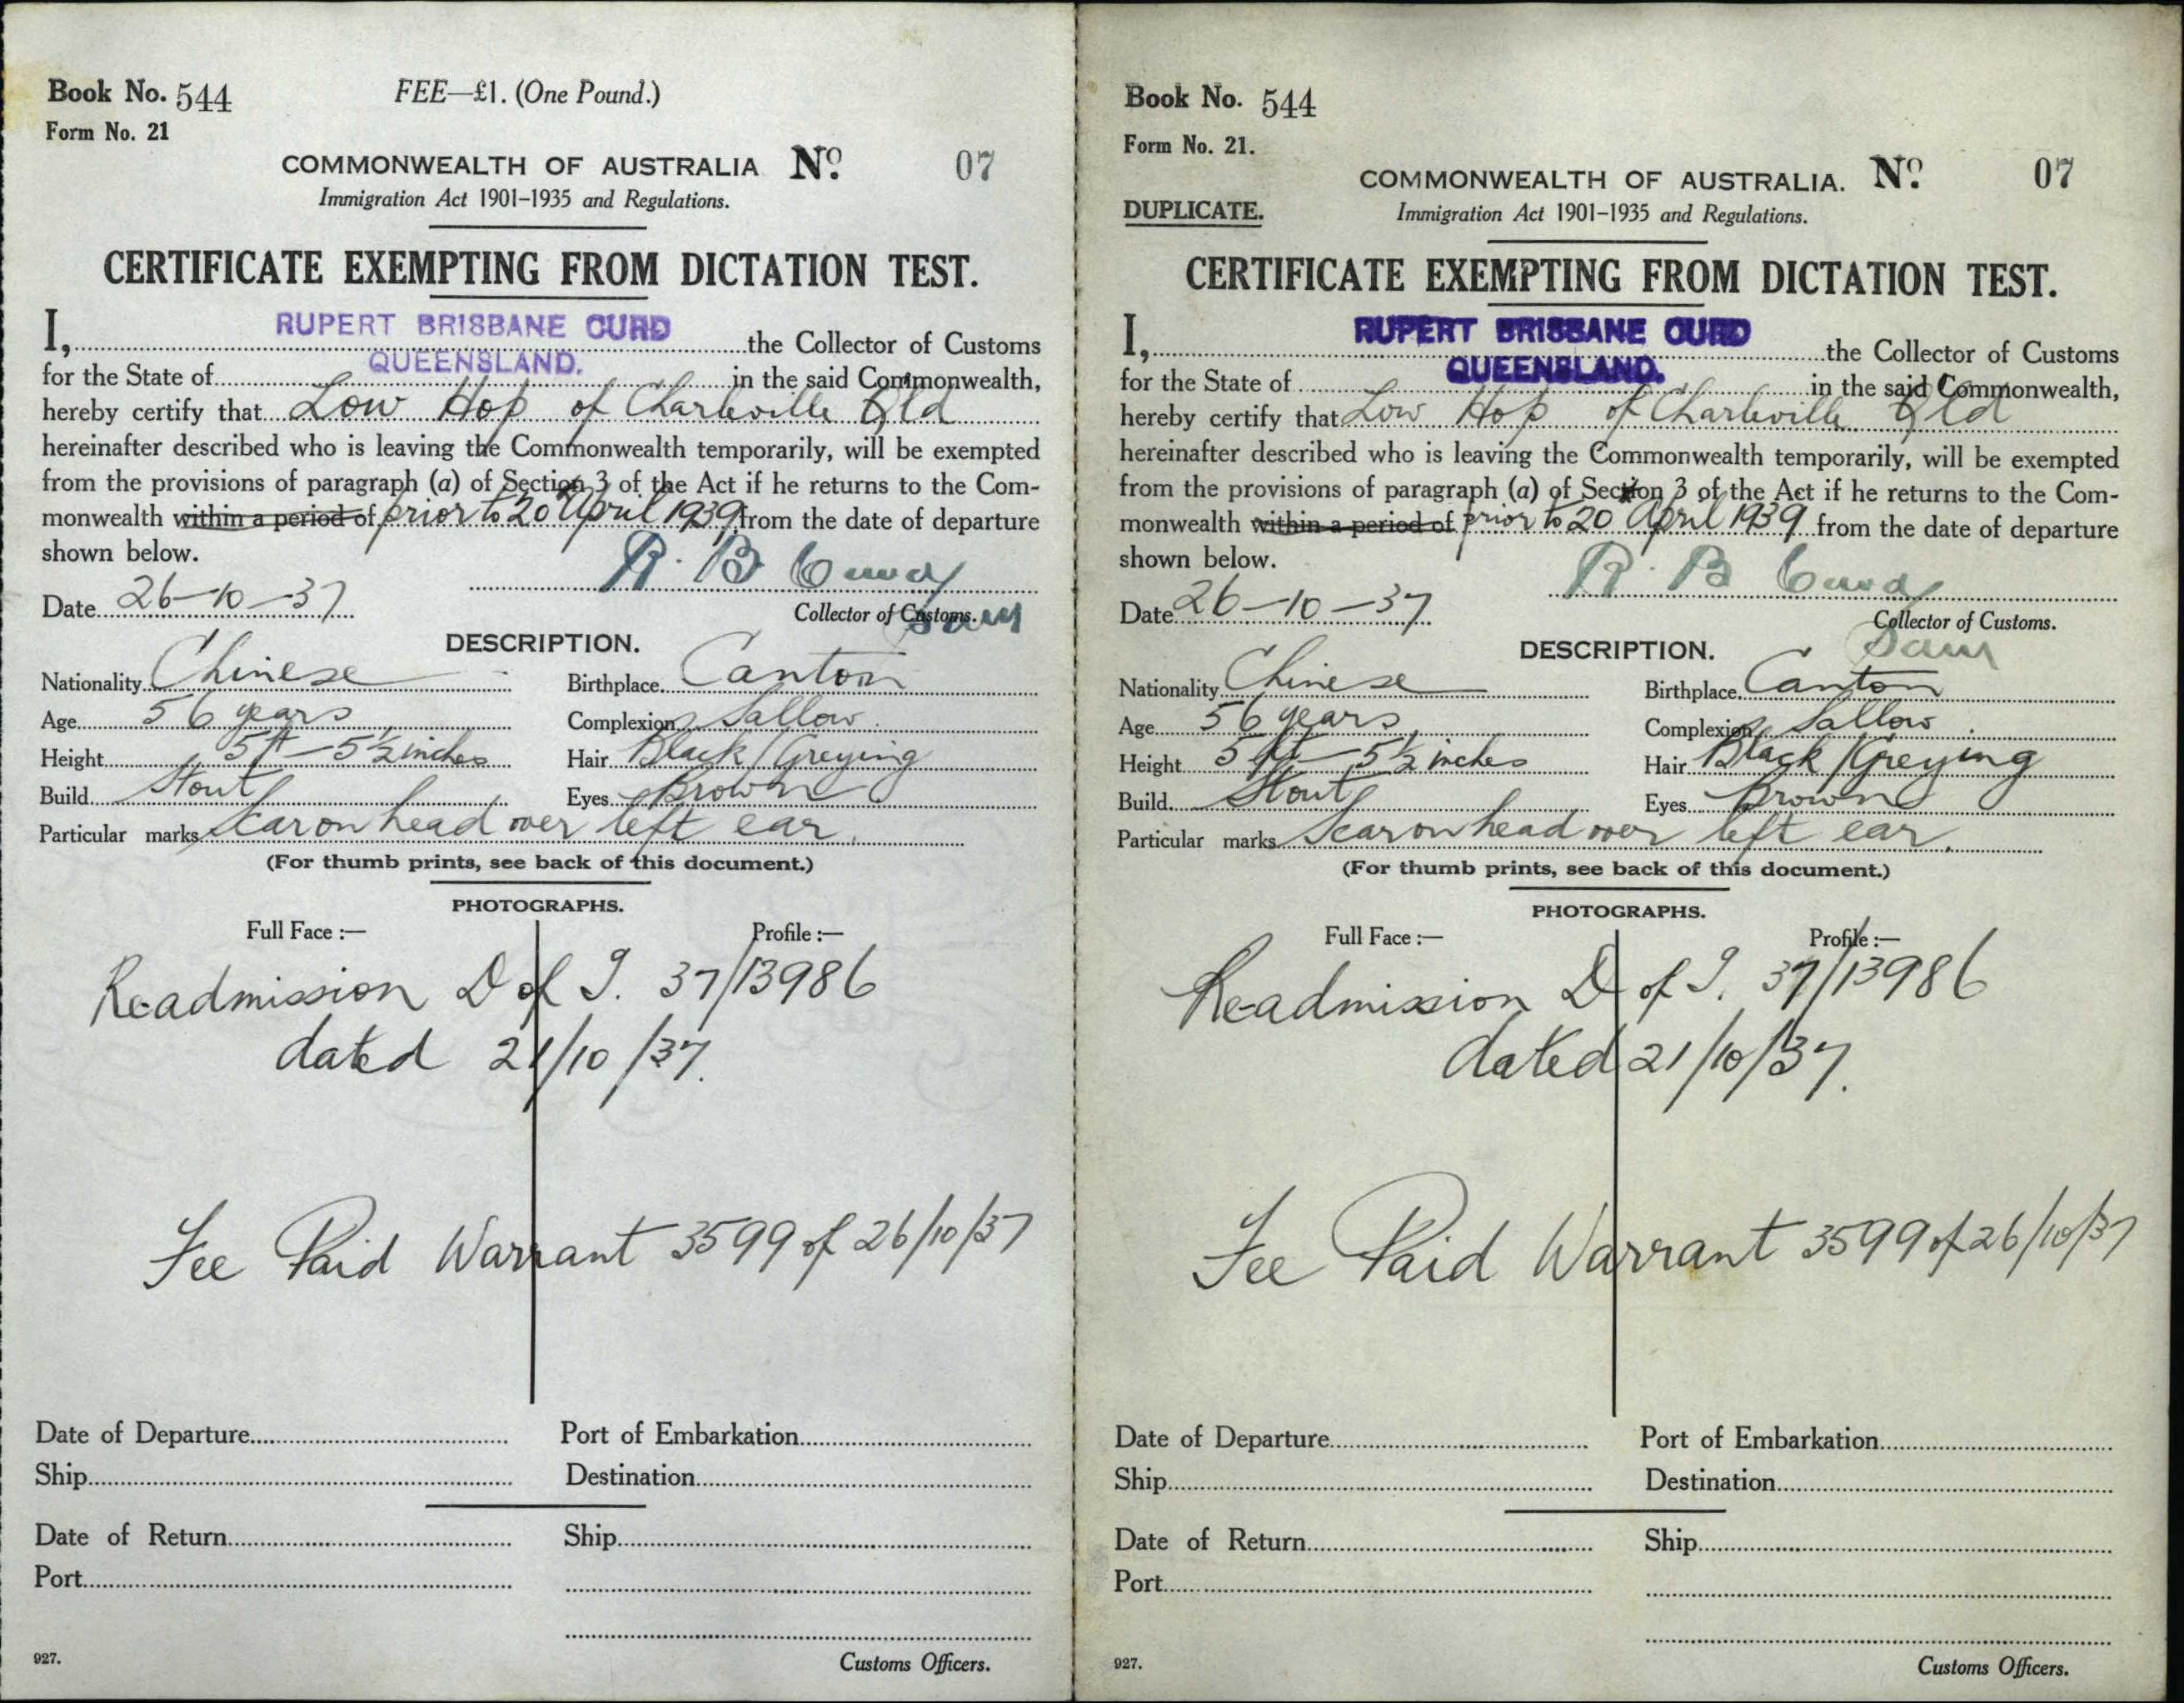 Book No. 544
FEE—£1. (One Pound.)
Form No. 21
COMMONWEALTH OF AUSTRALIA No. 07
Immigration Act 1901-1935 and Regulations.
CERTIFICATE EXEMPTING FROM DICTATION TEST.
I, RUPERT BRISBANE CURD the Collector of Customs
for the State of QUEENSLAND. in the said Commonwealth,
hereby certify that Low Hop of Charleville Qld
hereinafter described who is leaving the Commonwealth temporarily, will be exempted
from the provisions of paragraph (a) of Section 3 of the Act if he returns to the Com-
monwealth within a period of prior to 20 April 1939 from the date of departure
shown below.
R. B Curd
Date 26-10-37
Collector of Customs.
DESCRIPTION.
Nationality Chinese Birthplace Canton
Age 56 years Complexion Sallow
Height 5 ft - 5½ inches Hair Black/Greying
Build Stout Eyes Brown
Particular marks Scar on head over left ear.
(For thumb prints, see back of this document.)
PHOTOGRAPHS.
Full Face :— Profile :—
Readmission D of I. 37/13986
dated 21/10/37.
Fee Paid Warrant 3599 of 26/10/37
Date of Departure Port of Embarkation
Ship Destination
Date of Return Ship
Port
927. Customs Officers.
Book No. 544
Form No. 21.
COMMONWEALTH OF AUSTRALIA. No. 07
DUPLICATE.
Immigration Act 1901-1935 and Regulations.
CERTIFICATE EXEMPTING FROM DICTATION TEST.
I, RUPERT BRISBANE CURD the Collector of Customs
for the State of QUEENSLAND. in the said Commonwealth,
hereby certify that Low Hop of Charleville Qld
hereinafter described who is leaving the Commonwealth temporarily, will be exempted
from the provisions of paragraph (a) of Section 3 of the Act if he returns to the Com-
monwealth within a period of prior to 20 April 1939 from the date of departure
shown below.
R. B Curd
Date 26-10-37
Collector of Customs.
DESCRIPTION.
Nationality Chinese Birthplace Canton
Age 56 years Complexion Sallow
Height 5 ft - 5½ inches Hair Black/Greying
Build Stout Eyes Brown
Particular marks Scar on head over left ear.
(For thumb prints, see back of this document.)
PHOTOGRAPHS.
Full Face :— Profile :—
Readmission D of I. 37/13986
dated 21/10/37.
Fee Paid Warrant 3599 of 26/10/37
Date of Departure Port of Embarkation
Ship Destination
Date of Return Ship
Port
927. Customs Officers.